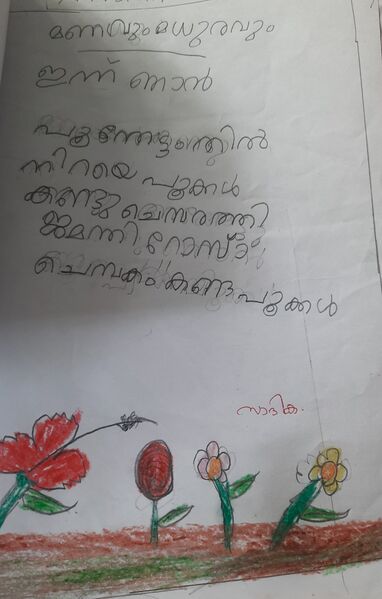 മണവും മധുരവും
ഇന്ന് ഞാൻ
പൂന്തോട്ടത്തിൽ
നിറയെ പൂക്കൾ
കണ്ടു ചെമ്പരത്തി
ജമന്തി റോസ്
ചെമ്പകം കണ്ട പൂക്കൾ
സാദിക.